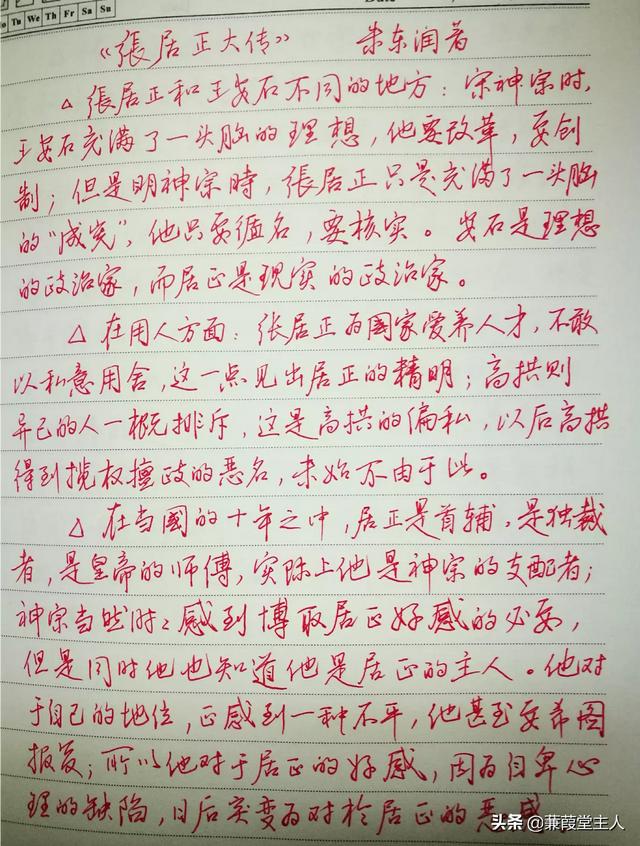 Mo Tu We Th Fr Sa Su
《張居正大传》 朱东润著
△ 張居正和王安石不同的地方：宋神宗时，
王安石充满了一头脑的理想，他要改革，要创
制；但是明神宗時，張居正只是充满了一头脑
的“成宪”，他只要循名，要核实。安石是理想
的政治家，而居正是现实的政治家。
△ 在用人方面：张居正为國家爱养人才，不敢
以私意用舍，这一点见出居正的精明；高拱则
异己的人一概排斥，这是高拱的偏私，以后高拱
得到揽权擅政的恶名，未始不由于此。
△ 在当國的十年之中，居正是首辅，是独裁
者，是皇帝的师傅，实际上他是神宗的支配者；
神宗当然时々感到博取居正好感的必要，
但是同时他也知道他是居正的主人。他对
于自己的地位，正感到一种不平，他甚至要希图
报复；所以他对于居正的好感，因为自卑心
理的缺陷，日后突变为对於居正的恶感
头条@蒹葭堂主人